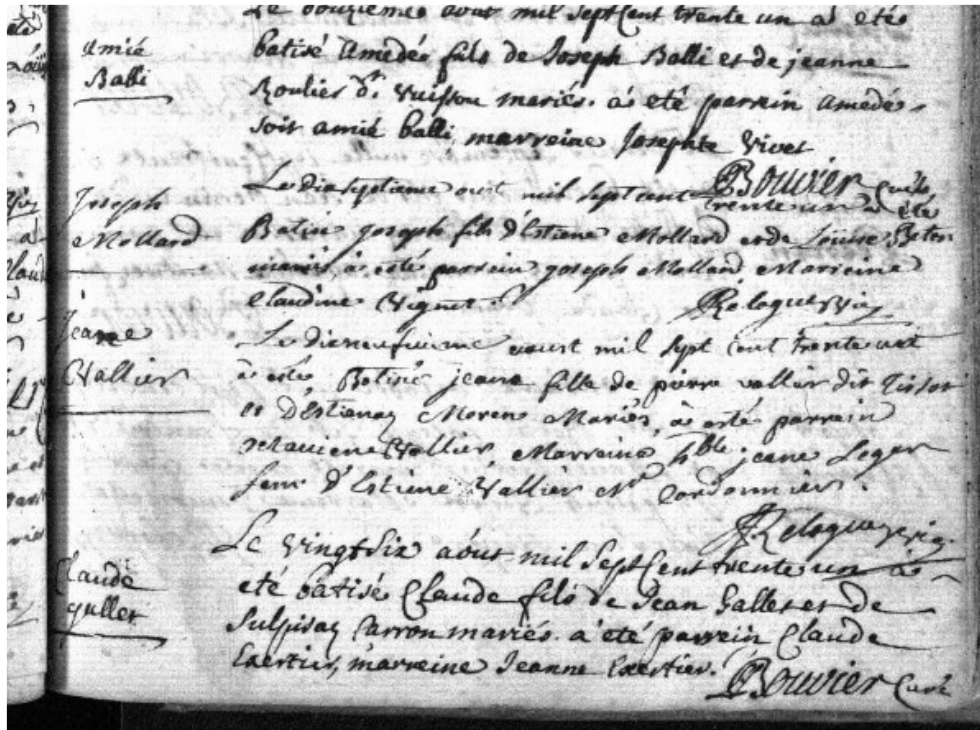 Le douziemes aout mil sept Cent trente un a eté
Amié
Balli
batisé Amedés fils de Joseph Balli et de jeanne
Roulier d. Vuisson mariés. a eté parrein amedés
soit amié balli, marreine Josephte Vivet
Bouvier Curé
Joseph
Mollard
Le dixseptieme aout mil sept cent trente un a été
Batisé joseph fils d'Estiene Mollard et de Louise
mariés, a esté parrein joseph Mollard Marreine
Claudine Vignet
Jeane
Vallier
Le dieneufuieme aoust mil sept cent trente un
a esté Batisée jeane fille de pierre vallier dit Tissot
et d'Estienaz Morens Mariés, a esté parrein
Vallier, Marreine hble jeane Leger
fem. d'Estiene Vallier Me Cordonnier.
Claude
gallet
Le vingtsix aout mil sept Cent trente un a
eté batisé Claude fils de Jean Gallet et de
Sulpisaz Carron mariés. a eté parrein Claude
Exertier, marreine Jeanne Exertier.
Bouvier Curé